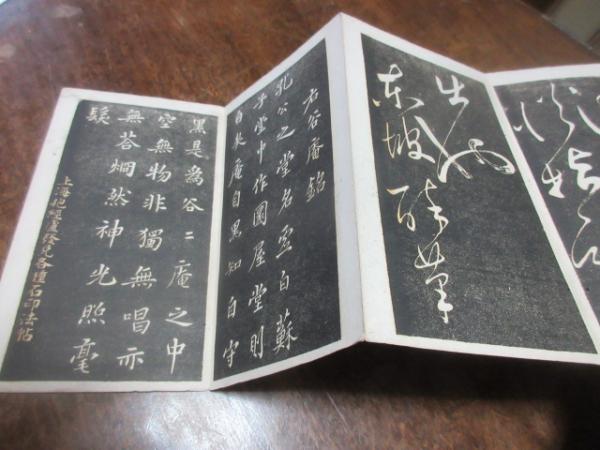 東坡醉筆
右谷庵銘
孔公之堂名虛白蘇
子堂中作圜屋堂則
白矣庵自黑知白守
黑是為谷〻庵之中
空無物非獨無唱亦
無答炯然神光照毫
髮
上海發兌各種石印法帖